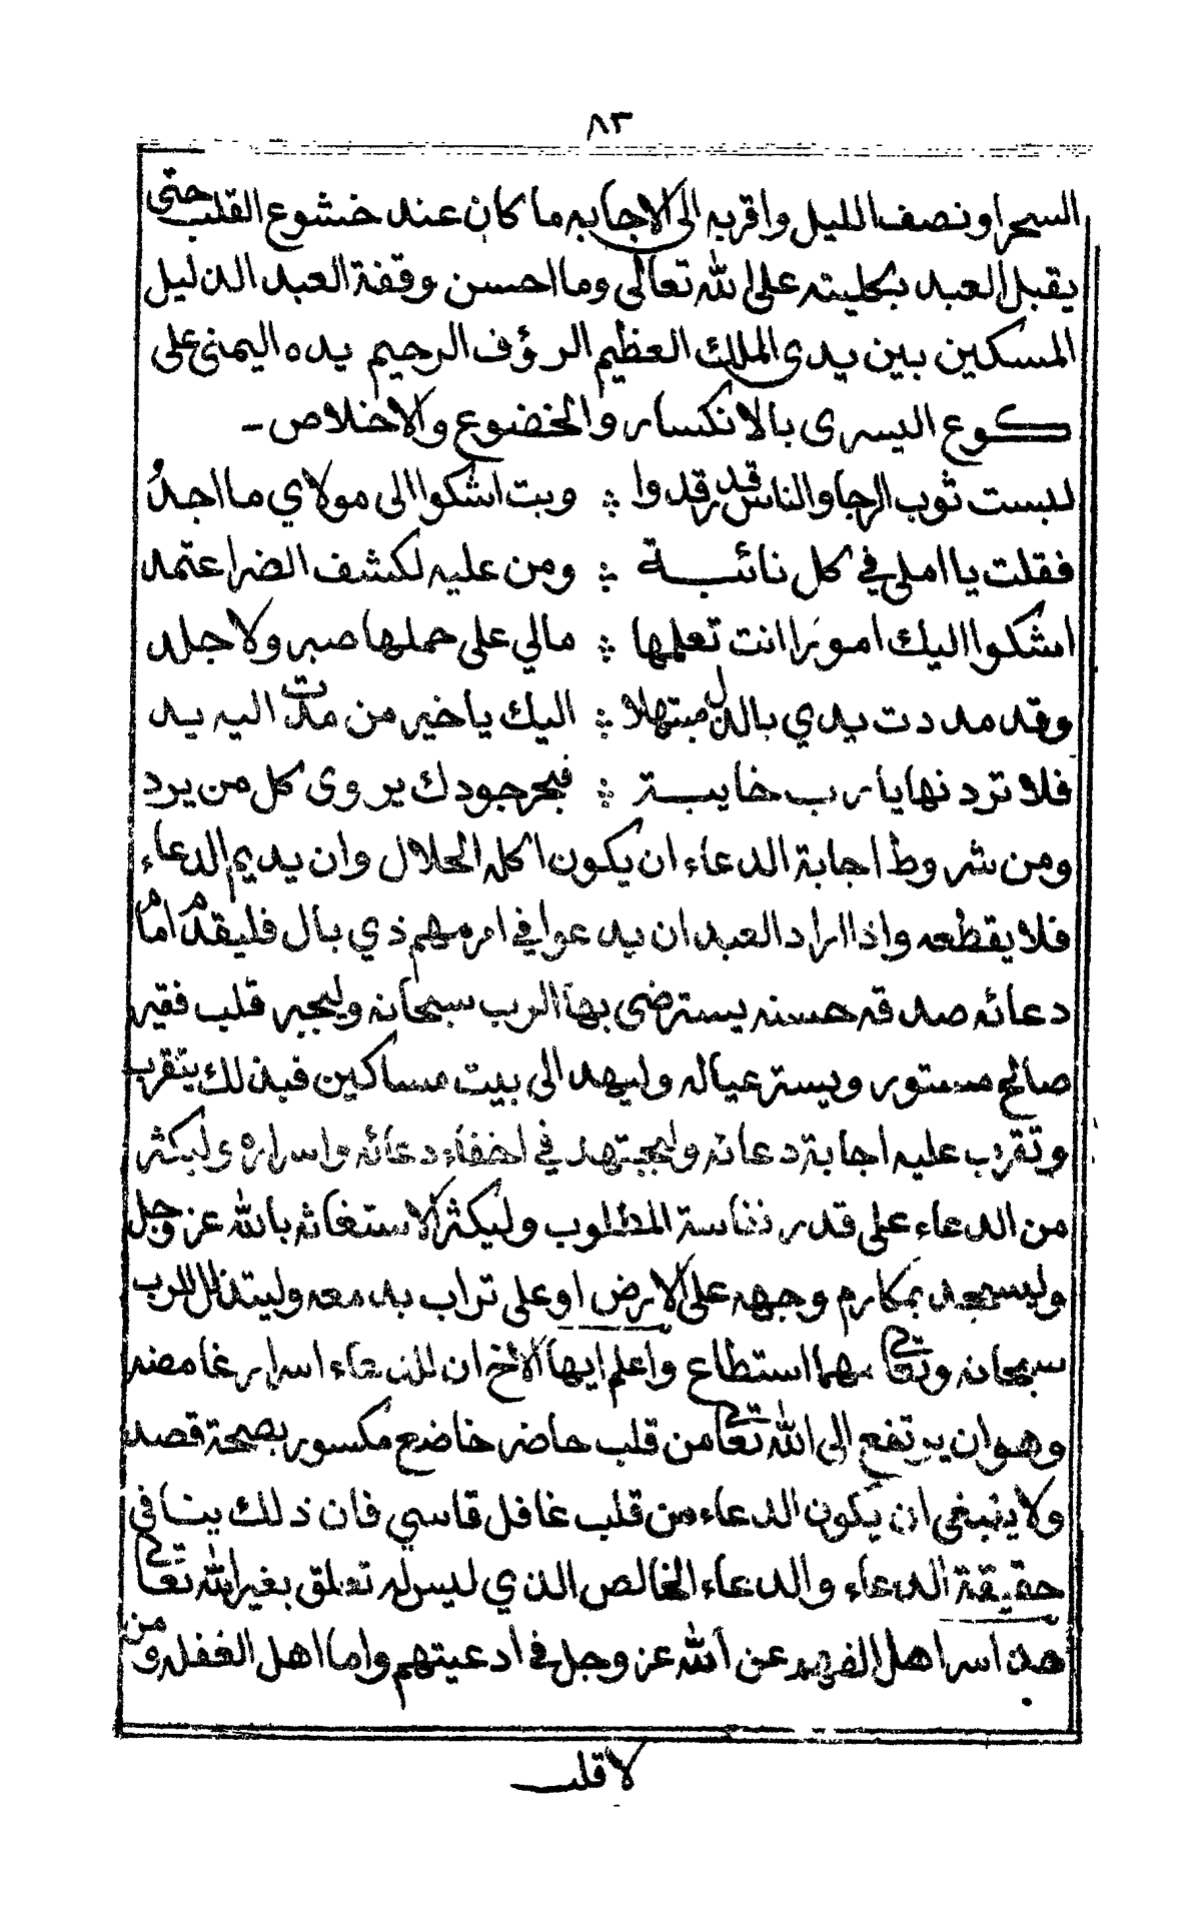 ٨٣
السحر او نصف الليل واقربه الى الاجابه ما كان عند خشوع القلب حتى
يقبل العبد بكليته على الله تعالى وما احسن وقفة العبد الذليل
المسكين بين يدى الملك العظيم الرؤف الرحيم يده اليمنى على
كوع اليسرى بالانكسار والخضوع والاخلاص -
لبست ثوب الرجا والناس قد رقدوا ؞ وبت اشكوا الى مولاي ما اجدُ
فقلت يا املى في كل نائبة ؞ ومن عليه لكشف الضر اعتمد
اشكوا اليك امورا انت تعلمها ؞ مالي على حملها صبر ولا جلد
وقد مددت يدي بالذل مبتهلا ؞ اليك يا خير من مدت اليه يد
فلا تردنها يا رب خايبة ؞ فبحر جودك يروى كل من يرد
ومن شروط اجابة الدعاء ان يكون اكله الحلال وان يديم الدعاء
فلا يقطعه واذا اراد العبد ان يدعوا في امر مهم ذي بال فليقدم امام
دعائه صدقه حسنه يسترضى بها الرب سبحانه وليجبر قلب فقير
صالح مستور ويستر عياله وليهد الى بيت مساكين فبذلك يتقرب
وتقرب عليه اجابة دعائه وليجتهد في اخفاء دعائه واسراره وليكثر
من الدعاء على قدر نفاسة المطلوب وليكثر الاستغاثه بالله عز وجل
وليسجد بمكارم وجهه على الارض او على تراب بدمعه وليتذلل للرب
سبحانه وتعالى مهما استطاع واعلم ايها الاخ ان للدعاء اسرار غامضه
وهو ان يرتفع الى الله تعالى من قلب حاضر خاضع مكسور بصحة قصد
ولا ينبغى ان يكون الدعاء من قلب غافل قاسي فان ذلك ينافى
حقيقة الدعاء والدعاء الخالص الذي ليس له تعلق بغير الله تعالى
هذا سر اهل الفهم عن الله عز وجل في ادعيتهم واما اهل الغفله ومن
لا قلب